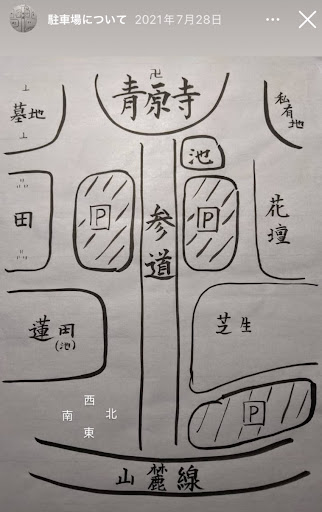 駐車場について 2021年7月28日
卍
青原寺
墓地
私有地
池
田
P
参道
P
花壇
蓮田
(池)
芝生
西
南 北
東
P
山麓線